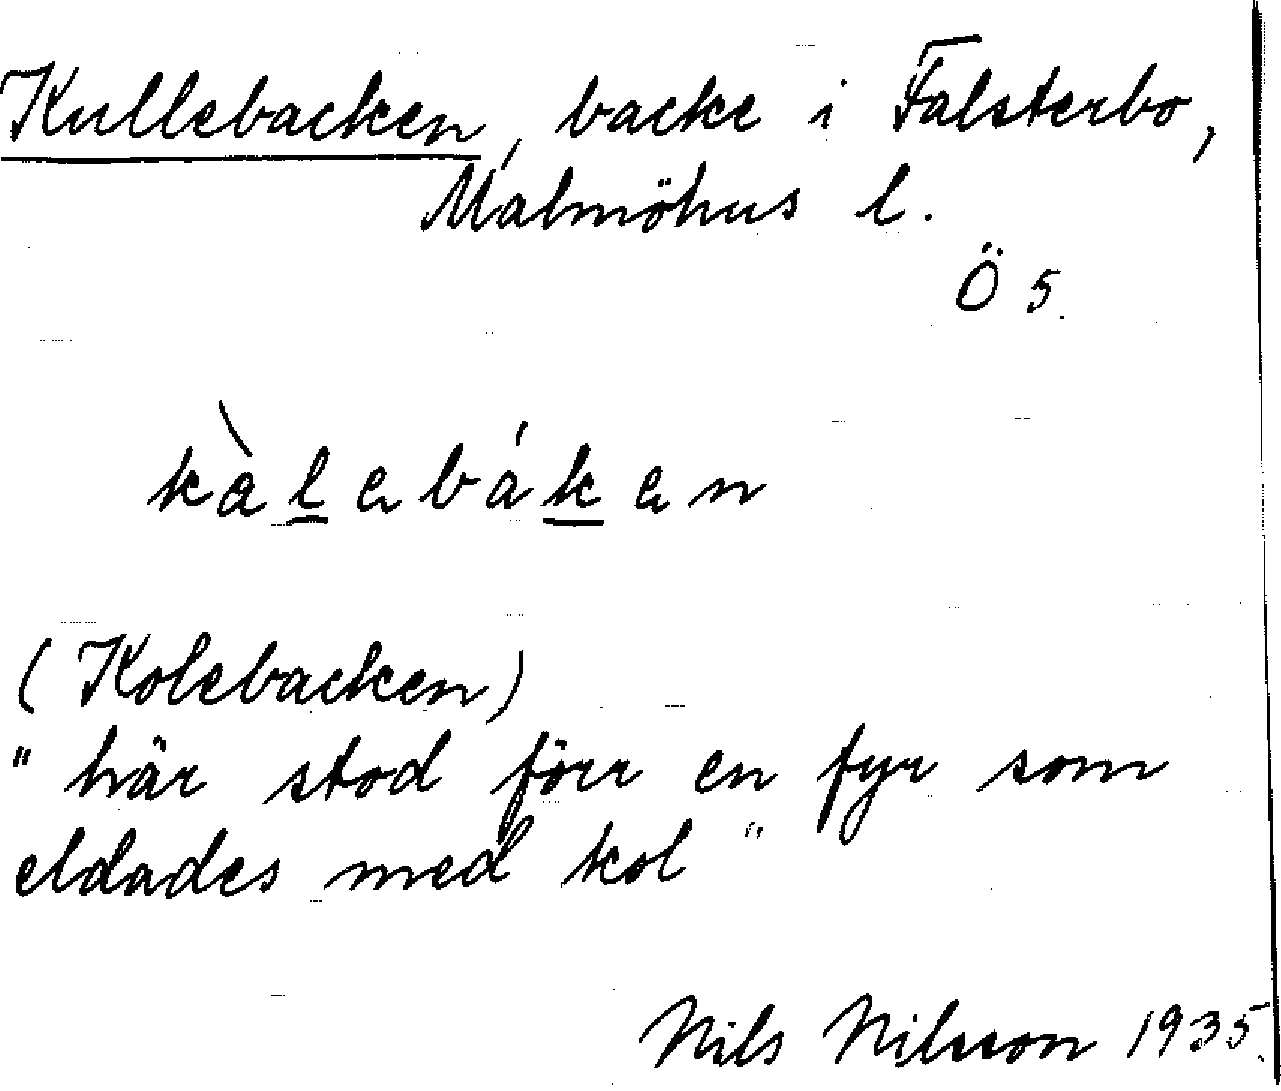 Kullebacken, backe i Falsterbo,
Malmöhus l.
Ö 5.
kàlebáken
(Kolebacken)
"här stod förr en fyr som
eldades med kol"
Nils Nilsson 1935.